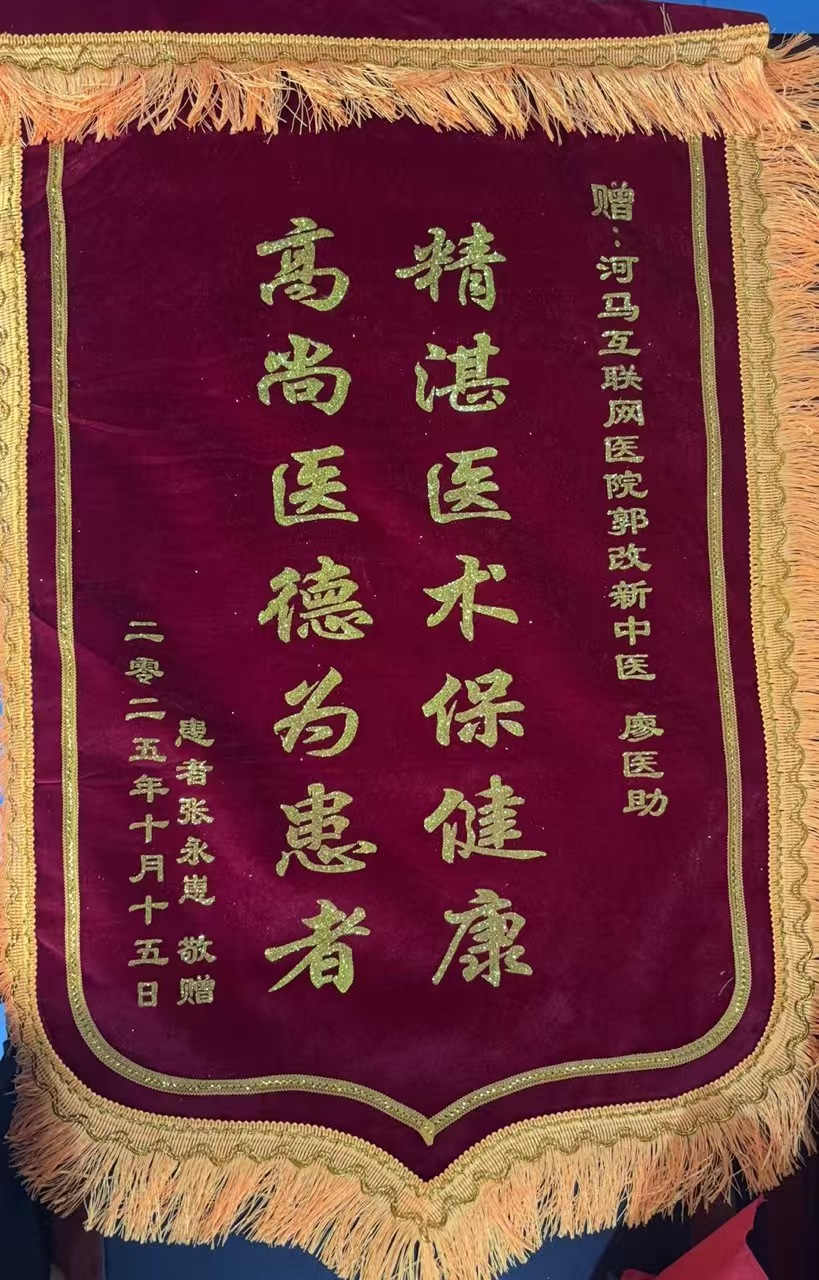 赠：河马互联网医院郭改新中医 廖医助
精湛医术保健康
高尚医德为患者
患者张永崽 敬赠
二零二五年十月十五日